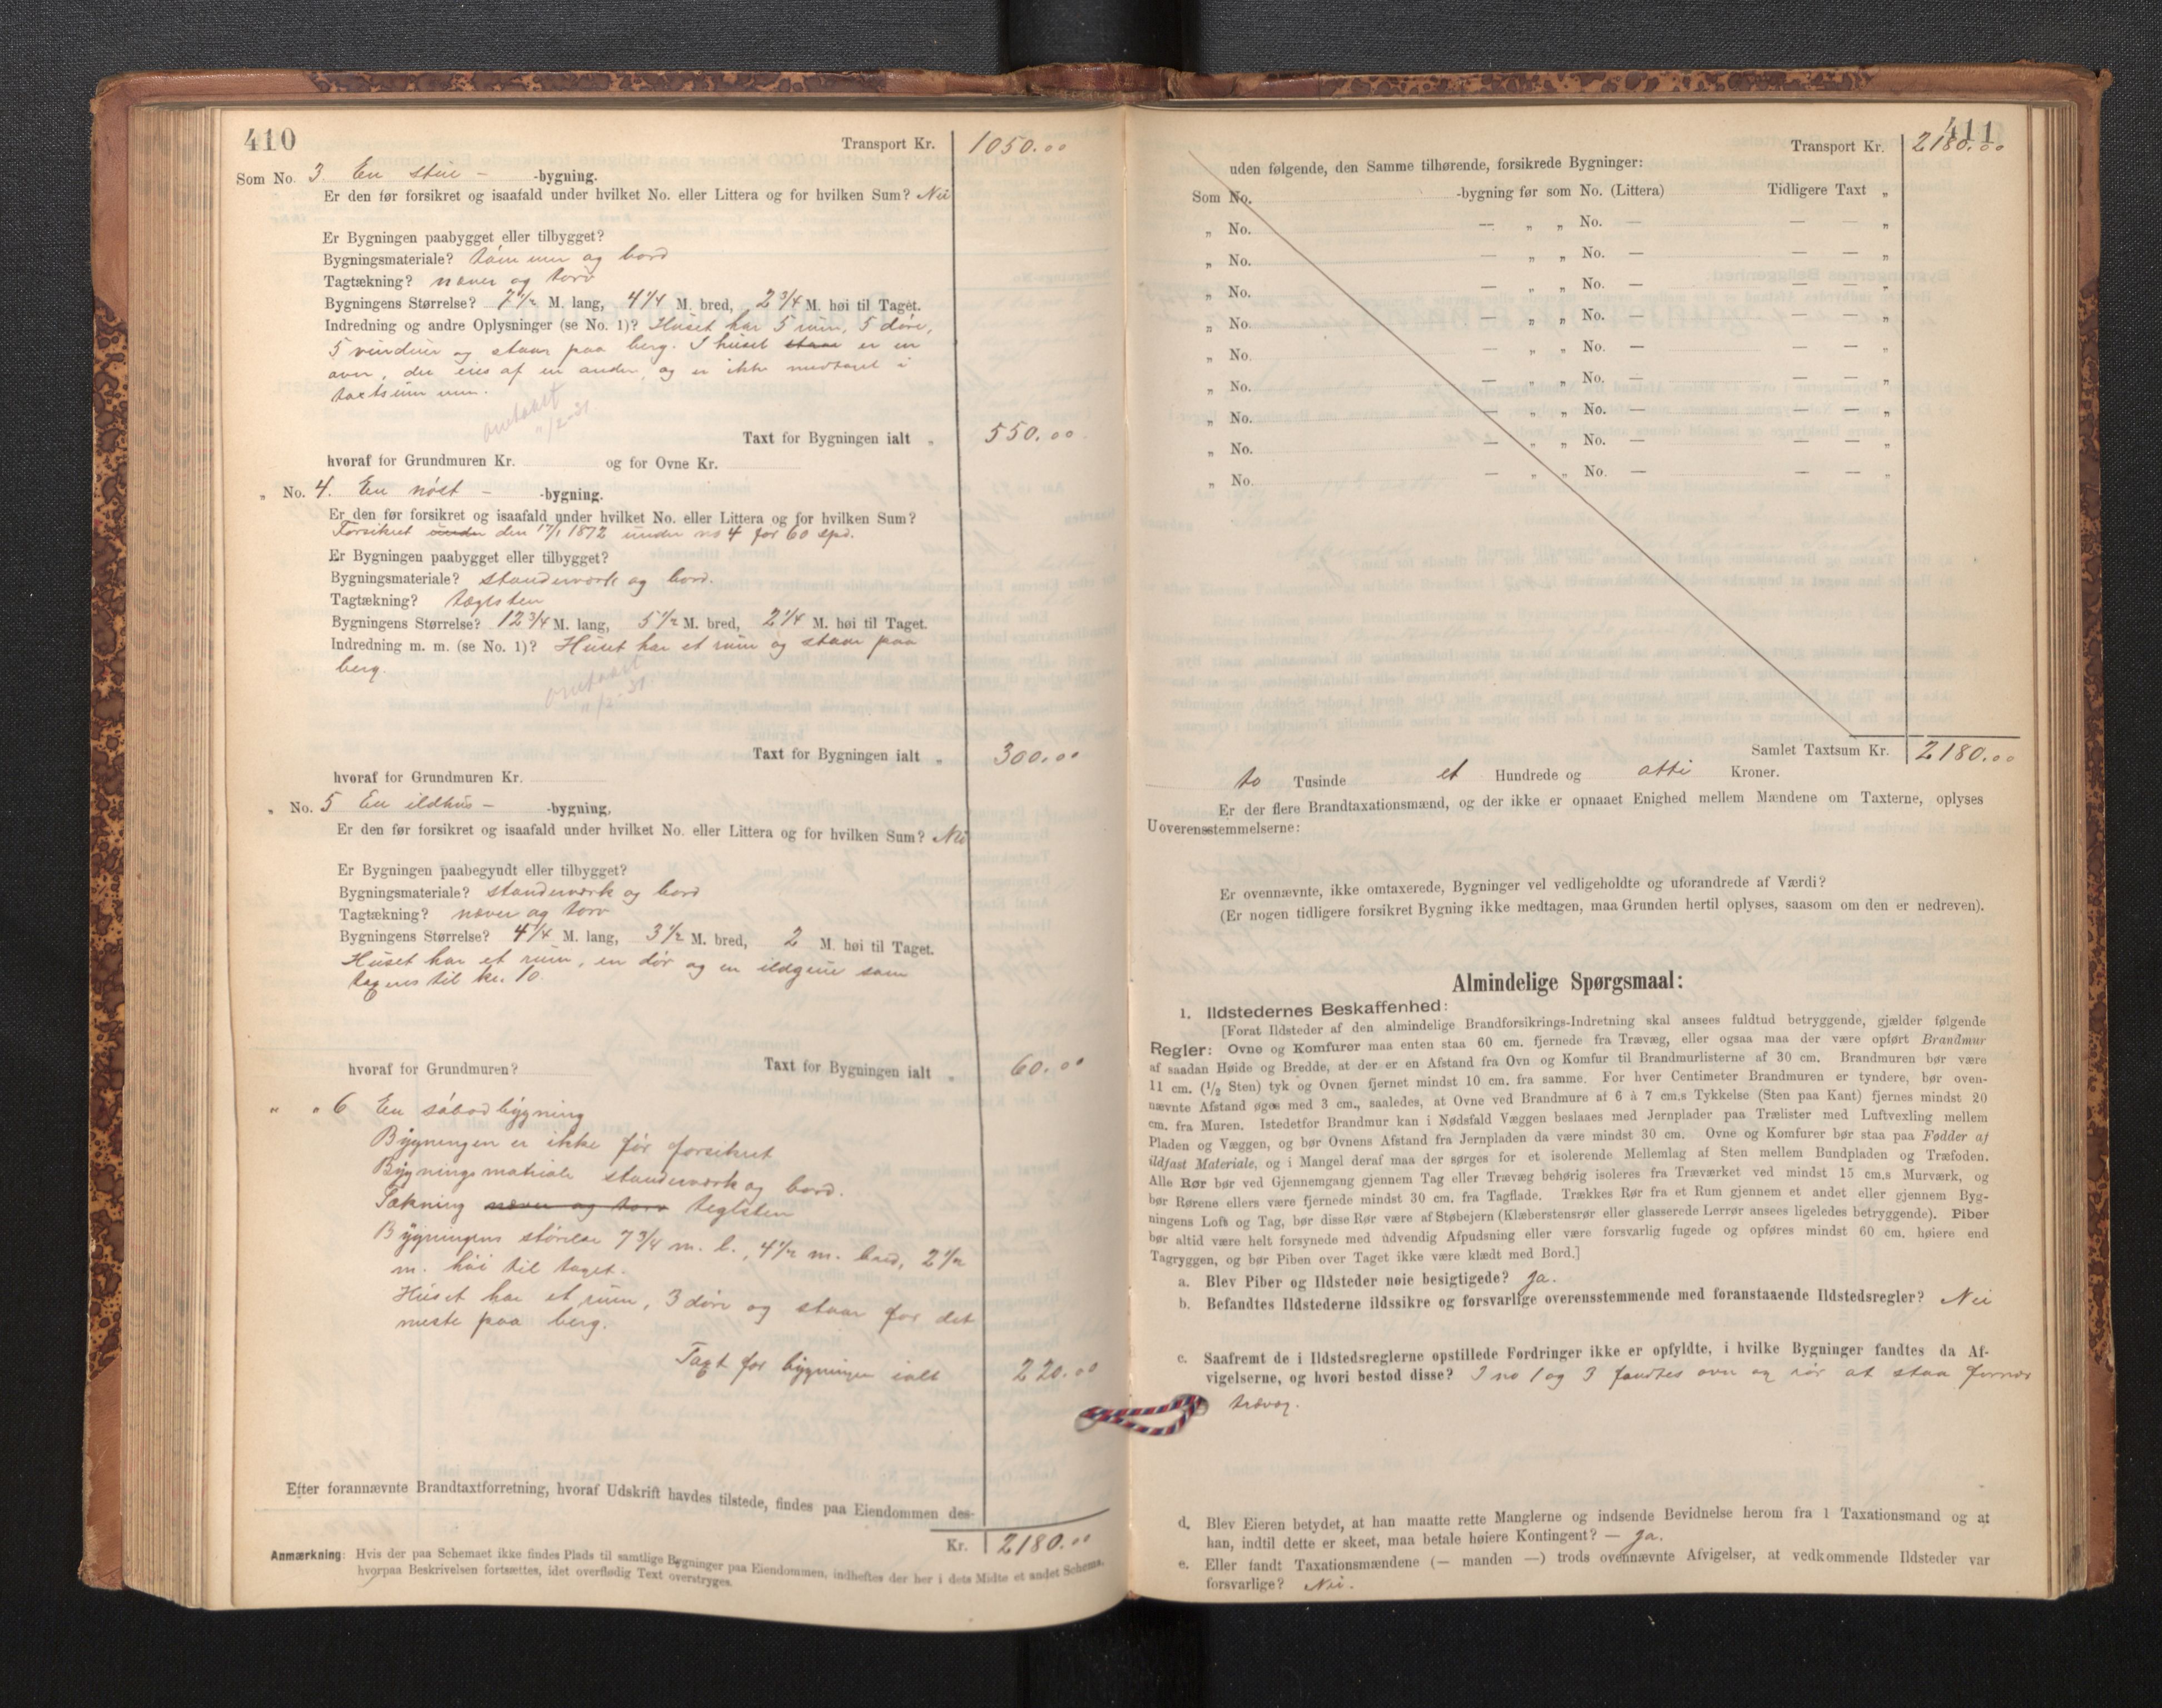 410
Transport Kr. 1050.00
Som No. 3. En stue - -bygning.
Er den før forsikret og isaafald under hvilket No. eller Littera og for hvilken Sum? Nei
Er Bygningen paabygget eller tilbygget?
Bygningsmateriale? tømmer og bord
Tagtækning? næver og torv
Bygningens Størrelse? 7 1/2 M. lang, 4 1/4 M. bred, 2 3/4 M. høi til Taget.
Indredning og andre Oplysninger (se No. 1)? Huset har 5 rum, 5 døre,
5 vinduer og staar paa berg. I huset staar er en
ovn, der eies af en anden, og er ikke medtaget i
taxtsummen.
Taxt for Bygningen ialt „ 550.00
hvoraf for Grundmuren Kr. og for Ovne Kr.
„ No. 4. En nøst - -bygning.
Er den før forsikret og isaafald under hvilket No. eller Littera og for hvilken Sum?
Forsikret under den 17/1 1872 under no 4 for 60 spd.
Er Bygningen paabygget eller tilbygget?
Bygningsmateriale? stenderværk og bord.
Tagtækning? tæglsten
Bygningens Størrelse? 12 3/4 M. lang, 5 1/2 M. bred, 2 1/4 M. høi til Taget.
Indredning m. m. (se No. 1)? Huset har et rum og staar paa
berg.
Taxt for Bygningen ialt „ 300.00
hvoraf for Grundmuren Kr.
„ No. 5 En ildhus - -bygning,
Er den før forsikret og isaafald under hvilket No. eller Littera og for hvilken Sum? Nei
Er Bygningen paabegyndt eller tilbygget?
Bygningsmateriale? stenderværk og bord
Tagtækning? næver og torv
Bygningens Størrelse? 4 1/4 M. lang, 3 1/2 M. bred, 2 M. høi til Taget.
Huset har et rum, en dør og en ildgrue som
taxeres til kr. 10.
hvoraf for Grundmuren? Taxt for Bygningen ialt „ 60.00
„ „ 6 En søbodbygning
Bygningen er ikke før forsikret
Bygningsmateriale stenderværk og bord.
Tækning næver og torv teglsten
Bygningens størrelse 7 3/4 m. l., 4 1/2 m. bred, 2 1/2
m. høi til taget.
Huset har et rum, 3 døre og staar for det
meste paa berg.
Taxt for bygningen ialt 220.00
Efter forannævnte Brandtaxtforretning, hvoraf Udskrift havdes tilstede, findes paa Eiendommen des-
Kr. 2180.00
Anmærkning: Hvis der paa Schemaet ikke findes Plads til samtlige Bygninger paa Eiendommen, indheftes der her i dets Midte et andet Schema,
hvorpaa Beskrivelsen fortsættes, idet overflødig Text overstryges.
411
Transport Kr. 2180.00
uden følgende, den Samme tilhørende, forsikrede Bygninger:
Som No. -bygning før som No. (Littera) Tidligere Taxt „
„ No. — „ „ No. — — — „
„ No. — „ „ No. — — — „
„ No. — „ „ No. — — — „
„ No. — „ „ No. — — — „
„ No. — „ „ No. — — — „
„ No. — „ „ No. — — — „
„ No. — „ „ No. — — — „
„ No. — „ „ No. — — — „
„ No. — „ „ No. — — — „
Samlet Taxtsum Kr. 2180.00
to Tusinde et Hundrede og otti Kroner.
Er der flere Brandtaxationsmænd, og der ikke er opnaaet Enighed mellem Mændene om Taxterne, oplyses
Uoverensstemmelserne:
Er ovennævnte, ikke omtaxerede, Bygninger vel vedligeholdte og uforandrede af Værdi?
(Er nogen tidligere forsikret Bygning ikke medtagen, maa Grunden hertil oplyses, saasom om den er nedreven).
Almindelige Spørgsmaal:
1. Ildstedernes Beskaffenhed:
[Forat Ildsteder af den almindelige Brandforsikrings-Indretning skal ansees fuldtud betryggende, gjælder følgende
Regler: Ovne og Komfurer maa enten staa 60 cm. fjernede fra Trævæg, eller ogsaa maa der være opført Brandmur
af saadan Høide og Bredde, at der er en Afstand fra Ovn og Komfur til Brandmurlisterne af 30 cm. Brandmuren bør være
11 cm. (1/2 Sten) tyk og Ovnen fjernet mindst 10 cm. fra samme. For hver Centimeter Brandmuren er tyndere, bør oven-
nævnte Afstand øges med 3 cm., saaledes, at Ovne ved Brandmure af 6 à 7 cm.s Tykkelse (Sten paa Kant) fjernes mindst 20
cm. fra Muren. Istedetfor Brandmur kan i Nødsfald Væggen beslaaes med Jernplader paa Trælister med Luftvexling mellem
Pladen og Væggen, og bør Ovnens Afstand fra Jernpladen da være mindst 30 cm. Ovne og Komfurer bør staa paa Fødder af
ildfast Materiale, og i Mangel deraf maa der sørges for et isolerende Mellemlag af Sten mellem Bundpladen og Træfoden.
Alle Rør bør ved Gjennemgang gjennem Tag eller Trævæg behørig isoleres fra Træværket ved mindst 15 cm.s Murværk, og
bør Rørene ellers være fjernede mindst 30 cm. fra Tagflade. Trækkes Rør fra et Rum gjennem et andet eller gjennem Byg-
ningens Loft og Tag, bør disse Rør være af Støbejern (Klæberstensrør eller glasserede Lerrør ansees ligeledes betryggende). Piber
bør altid være helt forsynede med udvendig Afpudsning eller være forsvarlig fugede og opføres mindst 60 cm. høiere end
Tagryggen, og bør Piben over Taget ikke være klædt med Bord.]
a. Blev Piber og Ildsteder nøie besigtigede? Ja.
b. Befandtes Ildstederne ildssikre og forsvarlige overensstemmende med foranstaaende Ildstedsregler? Nei
c. Saafremt de i Ildstedsreglerne opstillede Fordringer ikke er opfyldte, i hvilke Bygninger fandtes da Af-
vigelserne, og hvori bestod disse? I no 1 og 3 fandtes ovn og rør at staa for nær
trævæg.
d. Blev Eieren betydet, at han maatte rette Manglerne og indsende Bevidnelse herom fra 1 Taxationsmand og at
han, indtil dette er skeet, maa betale høiere Kontingent? — Ja.
e. Eller fandt Taxationsmændene (— manden —) trods ovennævnte Afvigelser, at vedkommende Ildsteder var
forsvarlige? Nei.